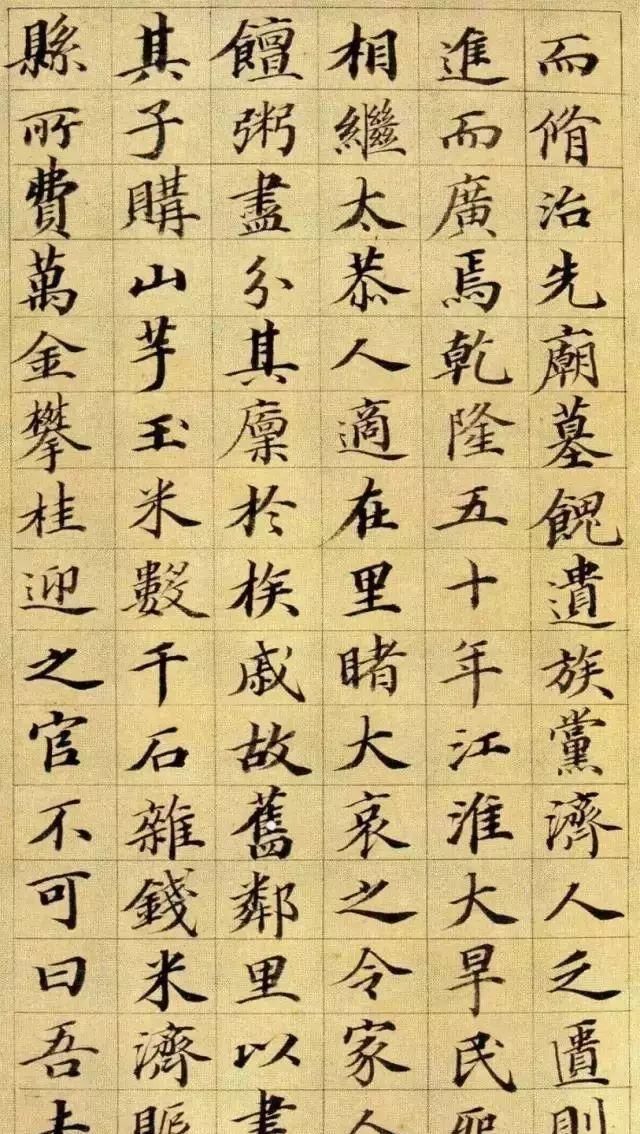 而脩治先廟墓餽遺族黨濟人乏匱則
進而廣焉乾隆五十年江淮大旱民
相繼太恭人適在里睹大哀之令家人
饘粥盡分其廩於族戚故舊鄰里以書
其子購山芋玉米數千石雜錢米濟賑
縣所費萬金攀桂迎之官不可曰吾